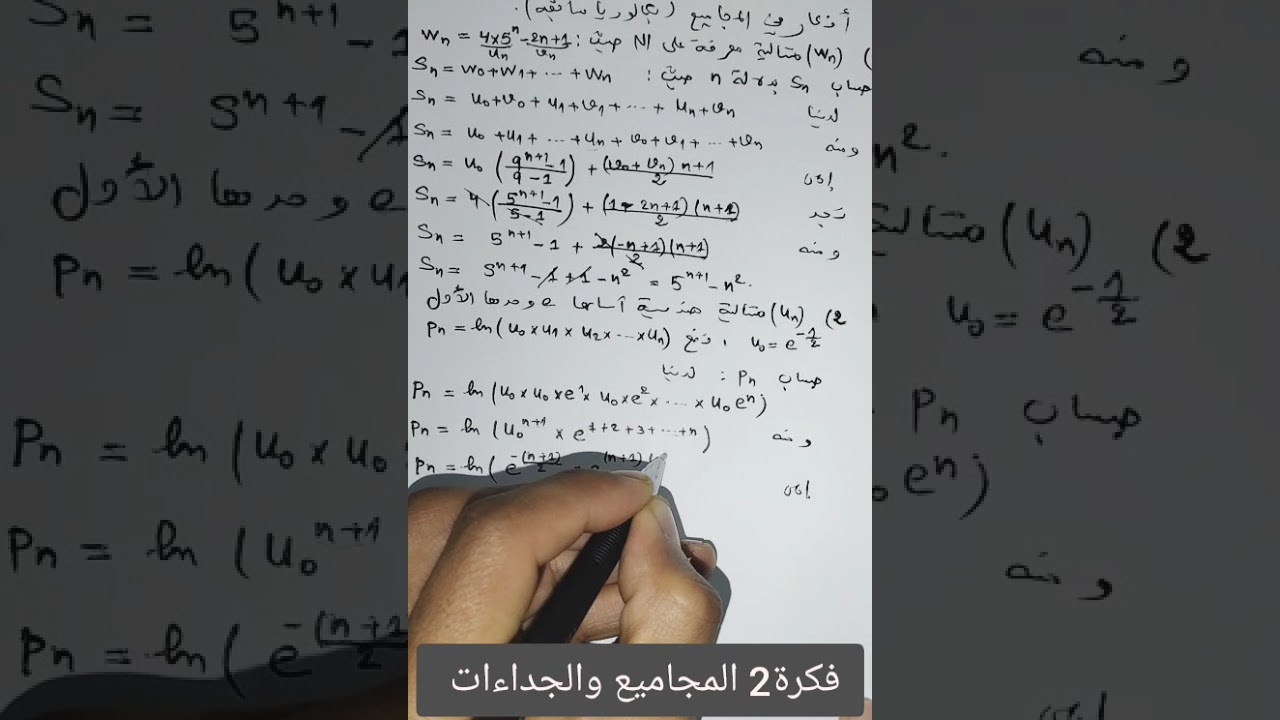 أفكار في المجاميع (بكالوريا سابقة).
(wn) متتالية معرفة على IN حيث: wn = 4×5^n - 2n+1
un vn
حساب Sn بدلالة n حيث: Sn = w0+w1+...+wn
لدينا Sn = u0+v0+u1+v1+...+un+vn
ومنه Sn = u0+u1+...+un+v0+v1+...+vn
إذن Sn = u0 (q^(n+1)-1 / q-1) + (v0+vn) n+1 / 2
نجد Sn = 4 (5^(n+1)-1 / 5-1) + (1-2n+1)(n+1) / 2
ومنه Sn = 5^(n+1)-1 + 2(-n+1)(n+1) / 2
Sn = 5^(n+1)-1+1-n² = 5^(n+1)-n².
2) (un) متتالية هندسية أساسها e وحدها الأول
u0 = e^(-1/2) ، نضع Pn = ln(u0×u1×u2×...×un)
حساب Pn: لدينا
Pn = ln(u0×u0×e^1×u0×e^2×...×u0e^n)
ومنه Pn = ln(u0^(n+1)×e^(1+2+3+...+n))
إذن Pn = ln(e^(-(n+1)/2) (n+1)
فكرة2 المجاميع والجداءات